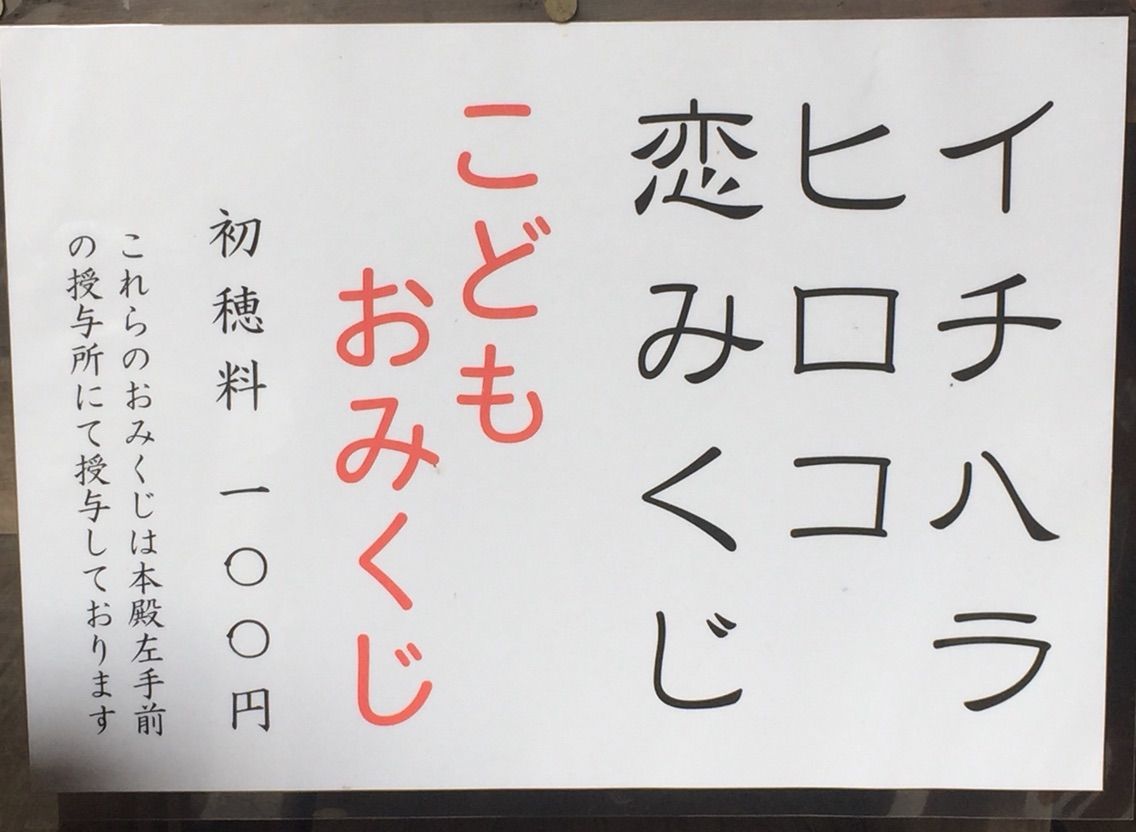 イチハラ
ヒロコ
恋みくじ
こども
おみくじ
初穂料 一〇〇円
これらのおみくじは本殿左手前
の授与所にて授与しております